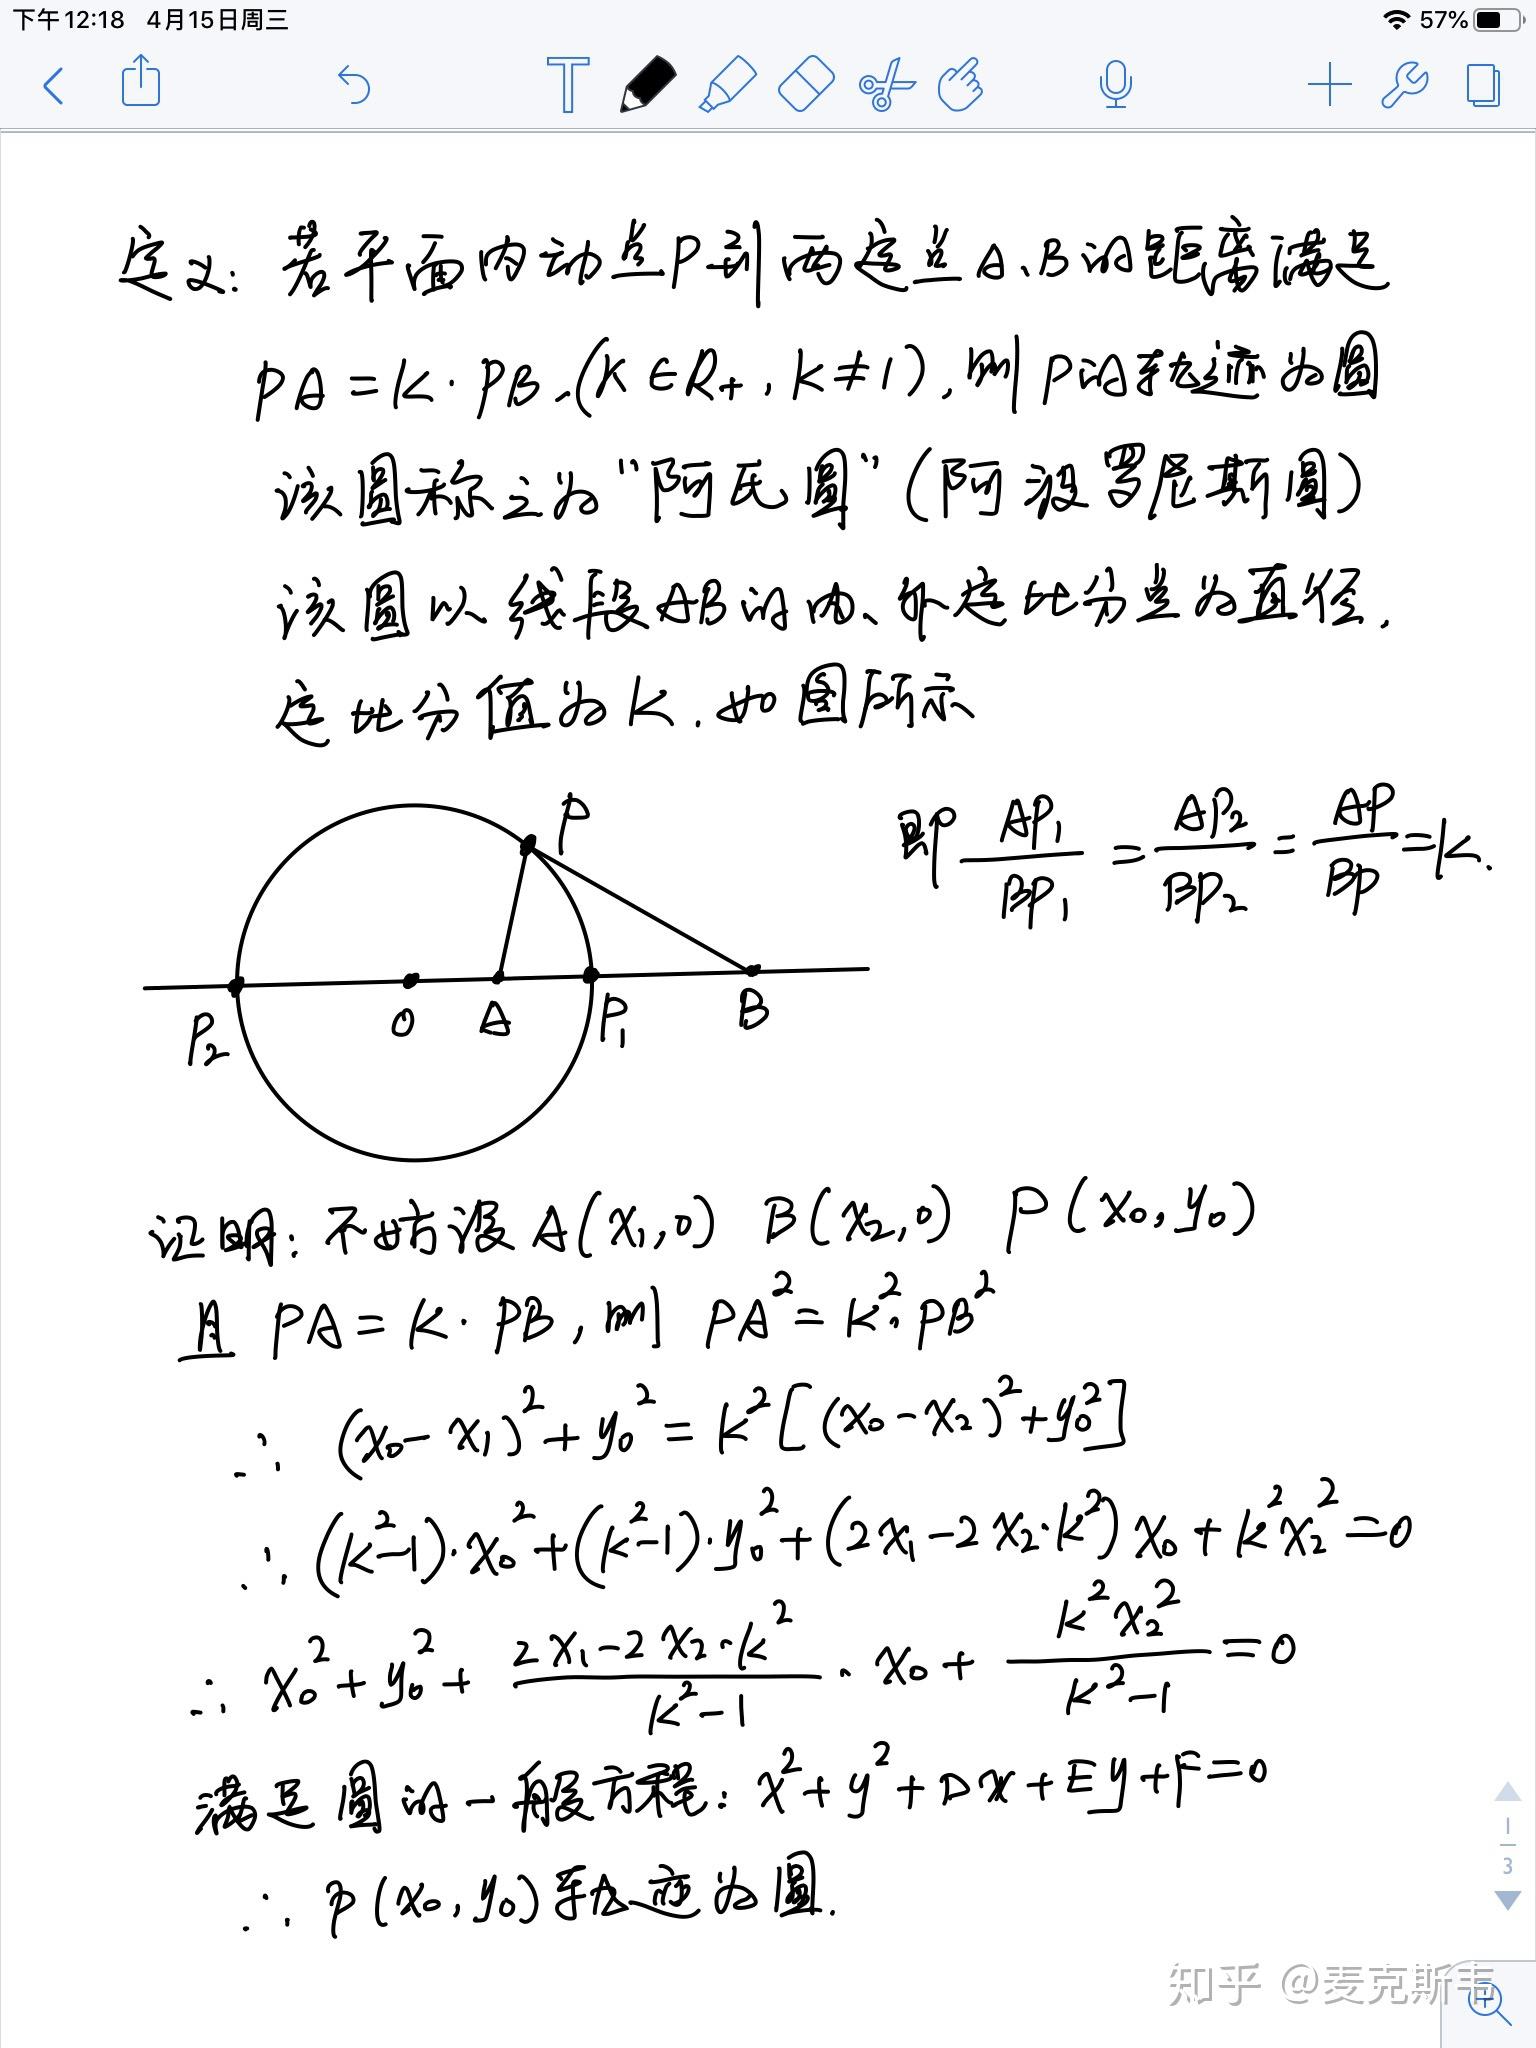 下午12:18 4月15日周三
57%
T
定义: 若平面内动点P到两定点A、B的距离满足
PA=K·PB,(K∈R₊, K≠1), 则P的轨迹为圆
该圆称之为“阿氏圆”(阿波罗尼斯圆)
该圆以线段AB的内、外定比分点为直径,
定比分值为K. 如图所示
即 AP₁/BP₁ = AP₂/BP₂ = AP/BP = K.
P
P₂ O A P₁ B
证明: 不妨设 A(x₁,0) B(x₂,0) P(x₀,y₀)
且 PA=K·PB, 则 PA²=K²·PB²
∴ (x₀-x₁)²+y₀²=K²[(x₀-x₂)²+y₀²]
∴ (K²-1)·x₀²+(K²-1)·y₀²+(2x₁-2x₂·K²)x₀+K²x₂²=0
∴ x₀²+y₀²+(2x₁-2x₂·K²)/(K²-1)·x₀+K²x₂²/(K²-1)=0
满足圆的一般方程: x²+y²+Dx+Ey+F=0
∴ P(x₀,y₀)轨迹为圆.
1
3
知乎 @麦克斯韦